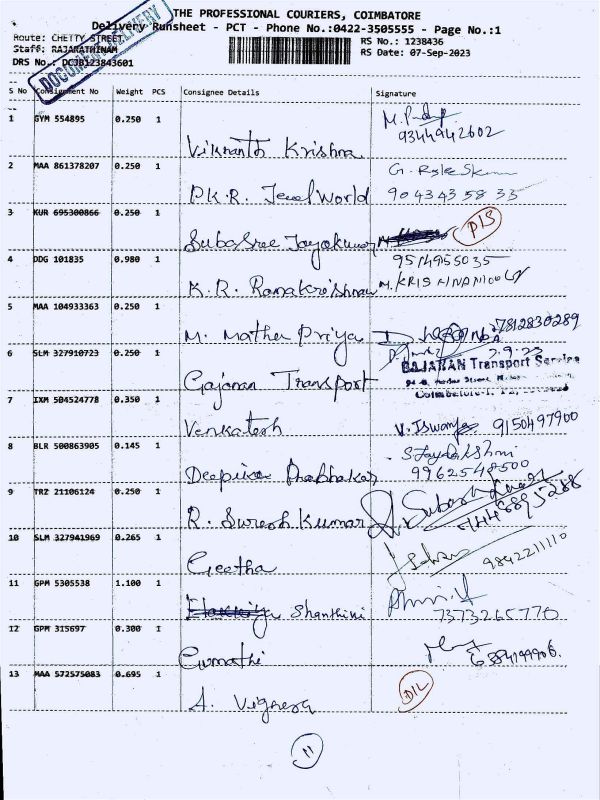 THE PROFESSIONAL COURIERS, COIMBATORE
Delivery Runsheet - PCT - Phone No.:0422-3505555 - Page No.:1
Route: CHETTY STREET
RS No.: 1238436
Staff: RAJARATHINAM
RS Date: 07-Sep-2023
DRS No.: DCJB123843601
DOCUMENT DELIVERY
S No Consignment No Weight PCS Consignee Details Signature
1 GYM 554895 0.250 1
9344942602
Vikranth Krishna
2 MAA 861378207 0.250 1
P.K.R. Jewel World 90434 35833
3 KUR 695300866 0.250 1
SubaSree Jayakumar
4 DDG 101835 0.980 1 9514955035
K.R. Ramakrishnan
5 MAA 104933363 0.250 1
7812830289
M. Mathu Priya
6 SLM 327910723 0.250 1 7.9.23
GAJANAN Transport Service
Gajanan Transport
Coimbatore-1.
7 IXM 504524778 0.350 1
Venkatesh 9150497900
8 BLR 500863905 0.145 1
9962548500
Prabhakar
9 TRZ 21106124 0.250 1
R. Suresh Kumar
10 SLM 327941969 0.265 1
Geetha 9842211110
11 GPM 5305538 1.100 1
Shanthini 7373265770
12 GPM 315697 0.300 1
Gumathi
13 MAA 572575083 0.695 1
D/L
A. Vignesa
11